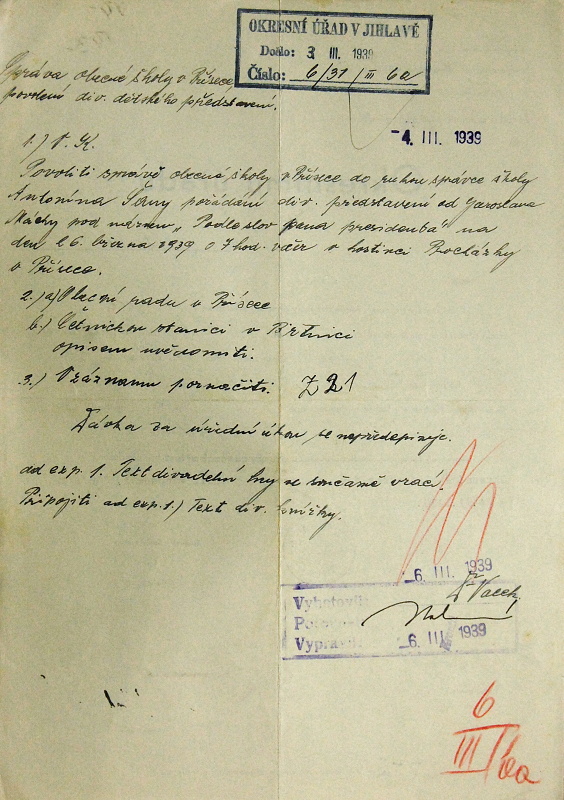 OKRESNÍ ÚŘAD V JIHLAVĚ
Došlo: 3 III. 1939
Číslo: 6/31/III 6a
Správa obecné školy v Přísece,
povolení div. dětského představení.
-4. III. 1939
1.) V. K.
Povoliti správě obecné školy v Přísece do rukou správce školy
Antonína Šány pořádání div. představení od Jaroslava
Máchy pod názvem „Podle slov pana presidenta" na
den 16. března 1939 o 7 hod. večer v hostinci Procházky
v Přísece.
2.) a) Obecní radu v Přísece
b.) Četnickou stanici v Brtnici
opisem uvědomiti.
3.) V záznamu poznačiti. Z 21
Dávka za úřední úkon se nepředepisuje.
ad exp. 1. Text divadelní hry se současně vrací.
Připojiti ad exp. 1.) Text div. knížky.
-6. III. 1939
Vyhotovil
Vypravil
-6. III. 1939
6
III/6a